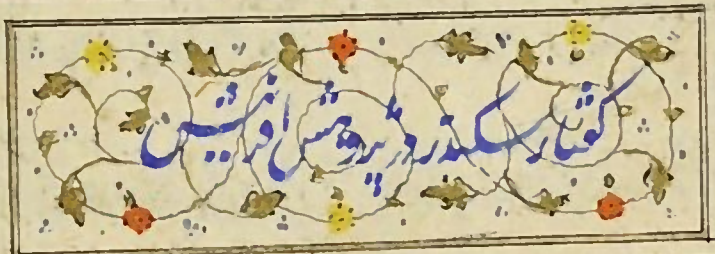 گفتار سکندر در پژوهش آفرینش